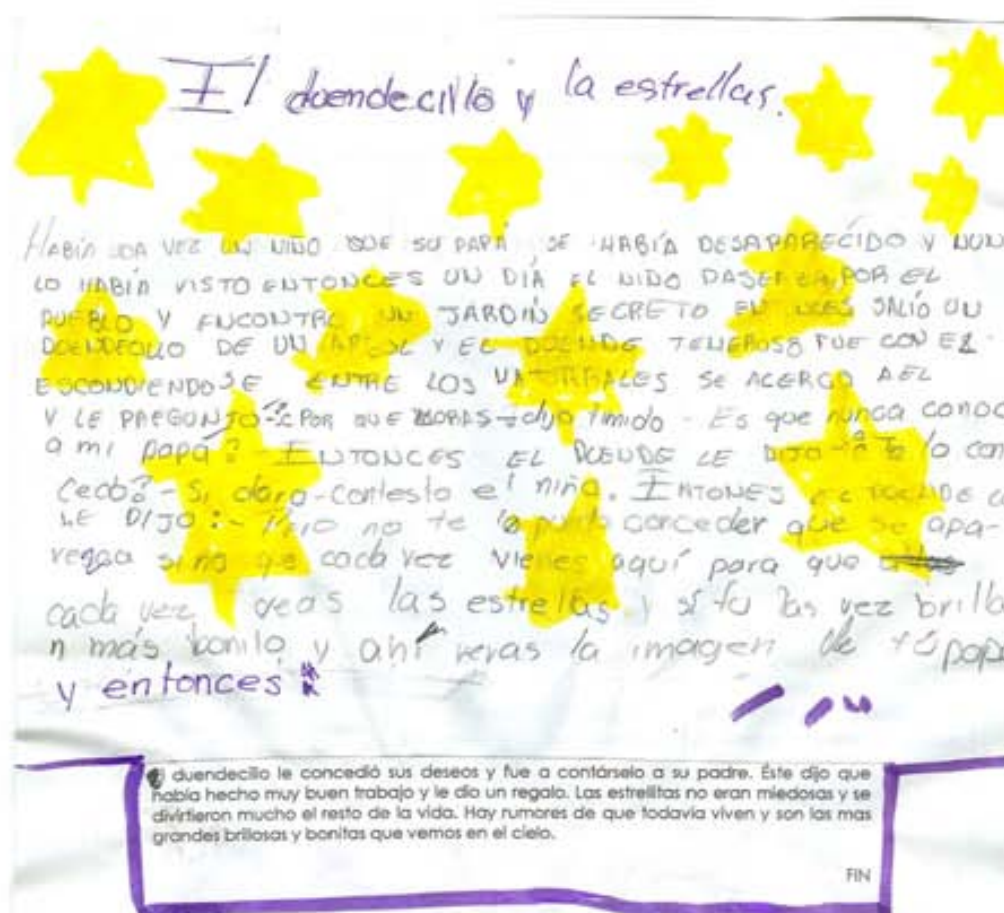 El duendecillo y la estrellas.
HABÍA UNA VEZ UN NIÑO QUE SU PAPÁ SE HABÍA DESAPARECIDO Y NUN
LO HABÍA VISTO ENTONCES UN DÍA EL NIÑO POR EL
PUEBLO Y ENCONTRO UN JARDÍN SECRETO SALÍO UN
DE UN ARBOL Y EL DUENDE FUE CON EL
ESCONDIENDOSE ENTRE LOS SE ACERCO AEL
Y LE PREGUNTO ¿POR QUE - dijo timido - Es que nunca conoc
a mi papá ENTONCES EL DUENDE LE DIJO lo con
cedo? - Si claro - contesto el niño. EL DUENDE
LE DIJO: - no te lo puedo conceder que se apa-
rezca sino que cada vez vienes aquí para que
cada vez veas las estrellas y si tu las vez brilla
n más bonito y ahí veras la imagen de tú papa
y entonces
duendecillo le concedió sus deseos y fue a contárselo a su padre. Éste dijo que
había hecho muy buen trabajo y le dio un regalo. Las estrellitas no eran miedosas y se
divirtieron mucho el resto de la vida. Hay rumores de que todavía viven y son las mas
grandes brillosas y bonitas que vemos en el cielo.
FIN